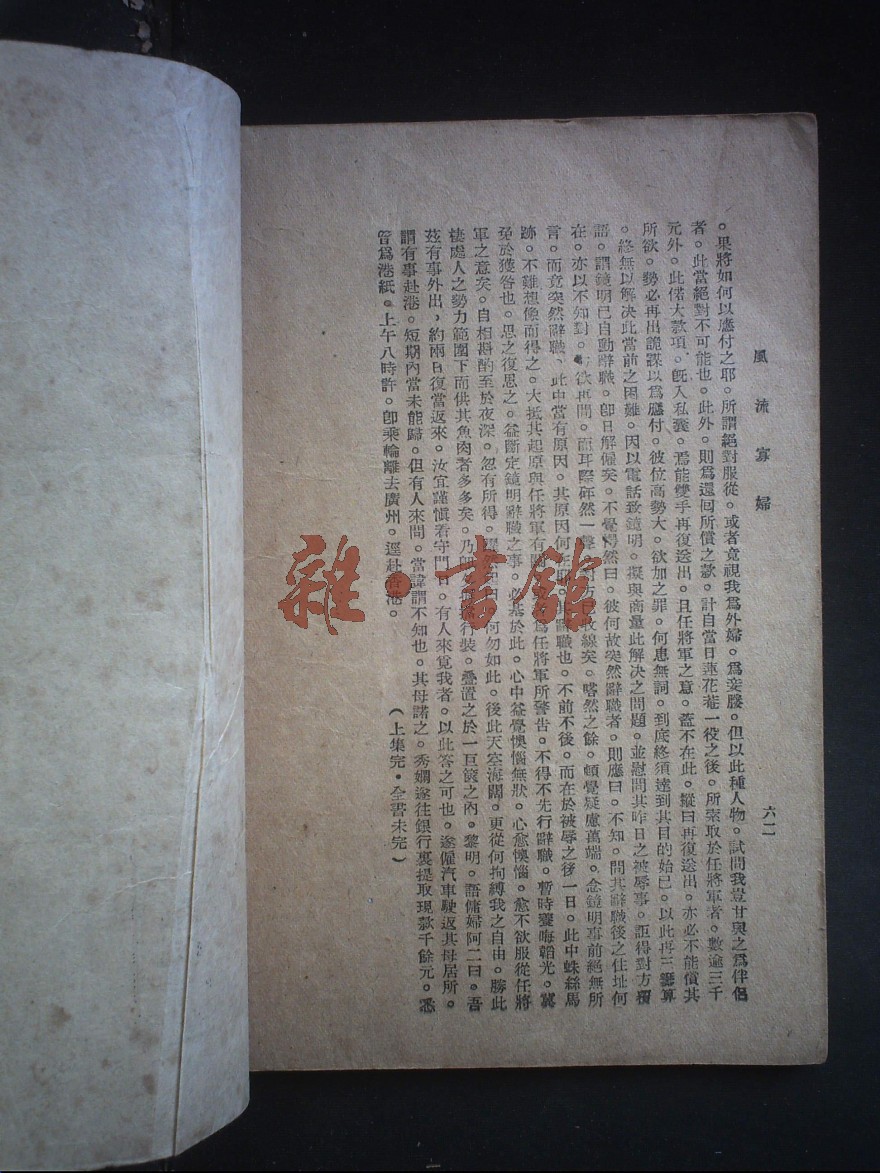 風流寡婦
六二
。果將如何以應付之耶。所謂絕對服從。或者竟視我爲外婦。爲妾媵。但以此種人物。試問我豈甘與之爲伴侶
者。此當絕對不可能也。此外。則爲還回所償之款。計自當日蓮花菴一役之後。所索取於任將軍者。數逾三千
元外。此偌大款項。旣入私囊。焉能雙手再復送出。且任將軍之意。蓋不在此。縱曰再復送出。亦必不能償其
所欲。勢必再出詭謀以爲應付。彼位高勢大。欲加之罪。何患無詞。到底終須達到其目的始已。以此再三籌算
。終無以解決此當前之困難。因以電話致鏡明。擬與商量此解決之問題。並慰問其昨日之被辱事。詎得對方覆
語。謂鏡明已自動辭職。卽日解僱矣。不覺愕然曰。彼何故突然辭職者。則應曰。不知。問其辭職後之住址何
在。亦以不知對。欲再問。而耳際砰然一聲。對方已收線矣。嗒然之餘。頓覺疑慮萬端。念鏡明事前絕無所
言。而竟突然辭職。此中當有原因。其原因何在耶。其辭職也。不前不後。而在於被辱之後一日。此中蛛絲馬
跡。不難想像而得之。大抵其起原與任將軍有關。爲任將軍所警告。不得不先行辭職。暫時韜晦韜光。冀
免於獲咎也。思之復思之。益斷定鏡明辭職之事。必基於此。心中益覺懊惱無狀。心愈懊惱。愈不欲服從任將
軍之意矣。自相斟酌至於夜深。忽有所得。曰。何勿如此。後此天空海闊。更從何拘縛我之自由。勝此
棲處人之勢力範圍下而供其魚肉者多多矣。乃卽行裝。疊置之於一巨篋之內。黎明。語傭婦阿二曰。吾
茲有事外出，約兩日復當返來。汝宜謹慎看守門口。有人來覓我者。以此答之可也。遂僱汽車駛返其母居所。
謂有事赴港。短期內當未能歸。但有人來問。當諱謂不知也。其母諾之。秀嫻遂往銀行裏提取現款千餘元。悉
皆爲港紙。上午八時許。卽乘輪離去廣州。逕赴香港。
（上集完・全書未完）
雜・書館